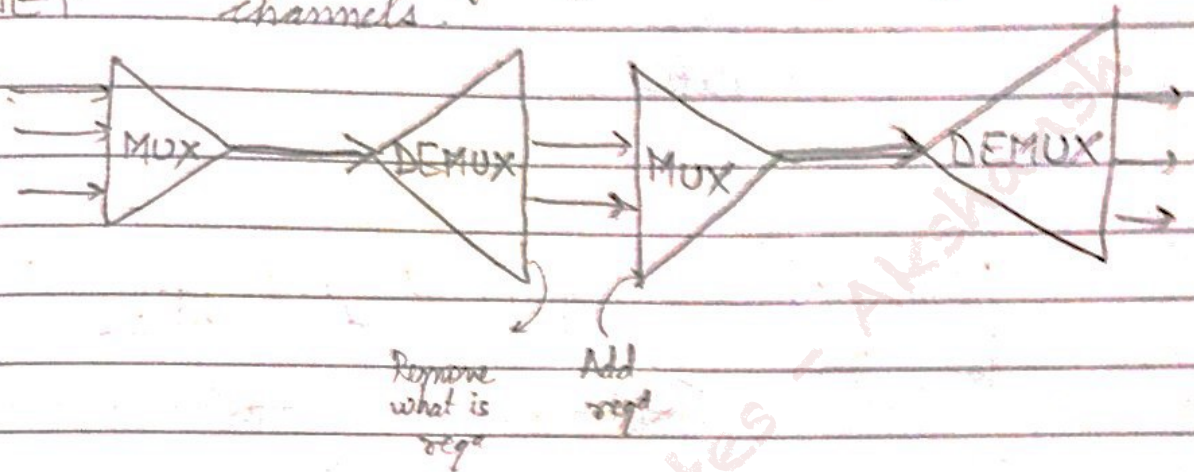 channels.
MUX DEMUX MUX DEMUX
Remove Add
what is reqd
reqd
- Akshansh